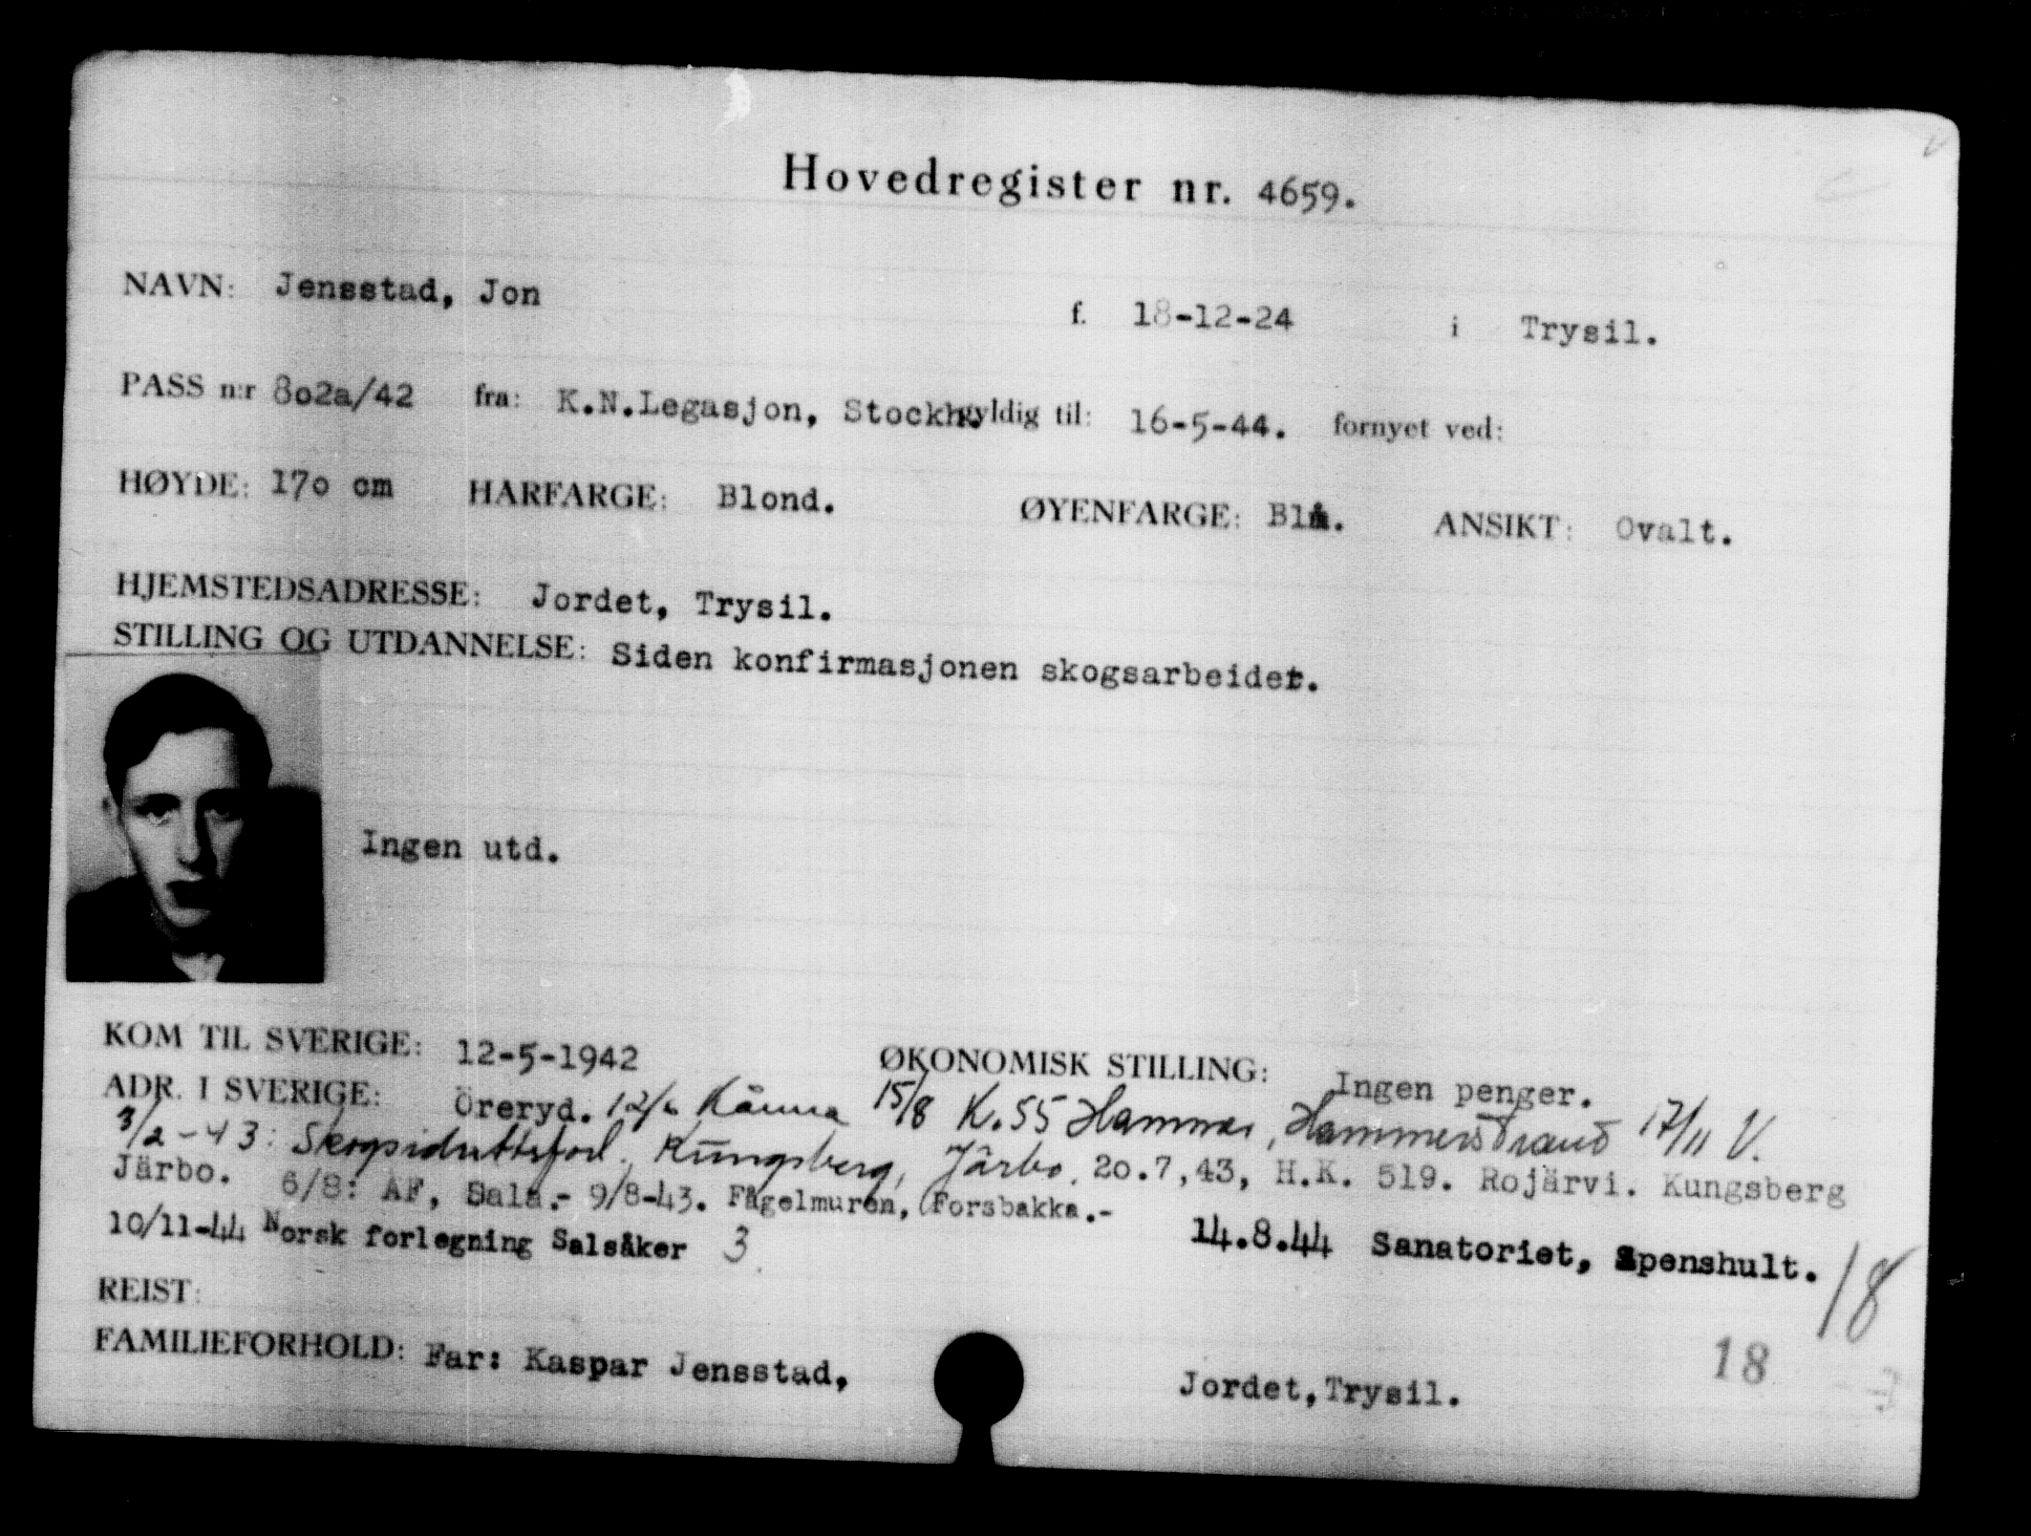 Hovedregister nr. 4659.
NAVN: Jensstad, Jon f. 18-12-24 i Trysil.
PASS n:r 802a/42 fra: K.N.Legasjon, Stockh. gyldig til: 16-5-44. fornyet ved:
HØYDE: 170 cm HARFARGE: Blond. ØYENFARGE: Blå. ANSIKT: Ovalt.
HJEMSTEDSADRESSE: Jordet, Trysil.
STILLING OG UTDANNELSE: Siden konfirmasjonen skogsarbeider.
Ingen utd.
KOM TIL SVERIGE: 12-5-1942 ØKONOMISK STILLING: Ingen penger.
ADR. I SVERIGE: Öreryd. 12/6 Kånna 15/8 K.55 Hammar, Hammerstrand 17/11 V.
3/2-43: Skogsiduttsforl., Kungsberg, Järbo. 20.7,43, H.K. 519. Rojärvi. Kungsberg
Järbo. 6/8: AF, Sala.- 9/8-43. Fågelmuren, Forsbakka.-
10/11-44 Norsk forlegning Salsåker 3 14.8.44 Sanatoriet, Spenshult.
18
REIST:
FAMILIEFORHOLD: Far: Kaspar Jensstad, Jordet,Trysil.
18